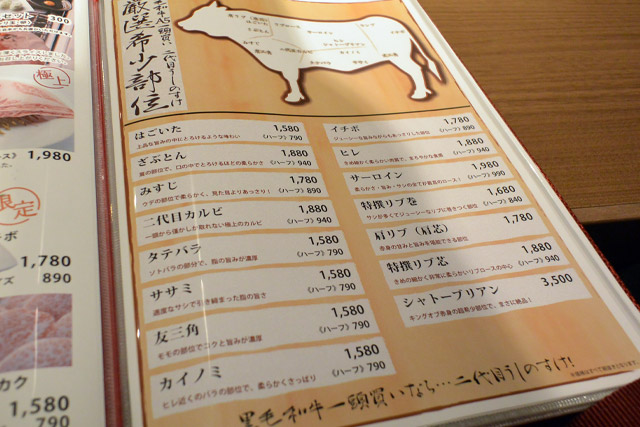 厳選希少部位
二代目うしのすけ
はごいた 1,580
上品な旨みの中にとろけるような味わい 〈ハーフ〉790
ざぶとん 1,880
肩の部位で、口の中でとろけるほどの柔らかさ 〈ハーフ〉940
みすじ 1,780
ウデの部位で柔らかく、見た目よりあっさり! 〈ハーフ〉890
二代目カルビ 1,880
一頭から僅かしか取れない極上のカルビ 〈ハーフ〉940
タテバラ 1,580
ソトバラの部分で、脂の旨みが濃厚 〈ハーフ〉790
ササミ 1,580
適度なサシで引き締まった脂の旨さ 〈ハーフ〉790
友三角 1,580
モモの部位でコクと旨みが濃厚 〈ハーフ〉790
カイノミ 1,580
ヒレ近くのバラの部位で、柔らかくさっぱり 〈ハーフ〉790
イチボ 1,780
ジューシーな旨みながらもあっさりした部位 〈ハーフ〉890
ヒレ 1,880
きめ細かく柔らかい赤身で、まろやかな風味 〈ハーフ〉940
サーロイン 1,980
柔らかさ・旨み・サシの全てが最高のロース! 〈ハーフ〉990
特撰リブ巻 1,680
サシが多くてジューシーなリブに巻きつく部位 〈ハーフ〉840
肩リブ(肩芯) 1,780
赤身の旨みと脂の旨みを堪能できる部位
特撰リブ芯 1,880
きめの細かく非常に柔らかいリブロースの中心 〈ハーフ〉940
シャトーブリアン 3,500
キングオブ赤身の超希少部位で、まさに絶品!
黒毛和牛一頭買いなら…二代目うしのすけ!
セット 300
極上
1,980
限定
1,780
890
カク
1,580
790